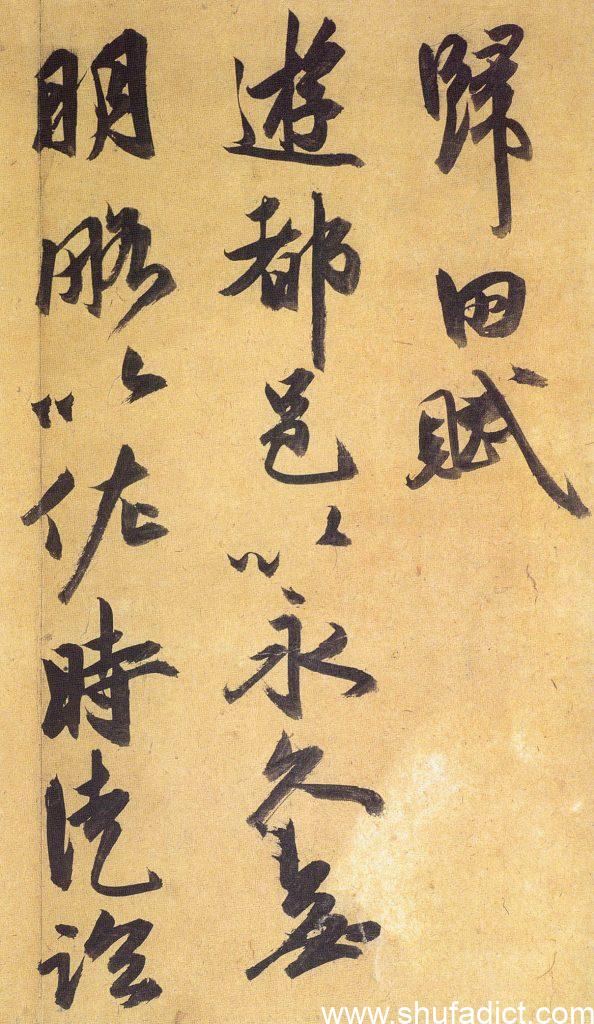 歸田賦
遊都邑以永久無
明略以佐時徒臨
www.shufadict.com